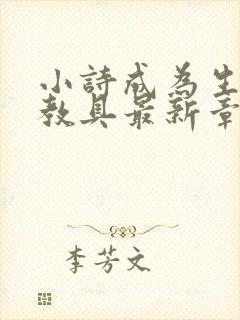 小詩成為生
教具最新章
李芳文